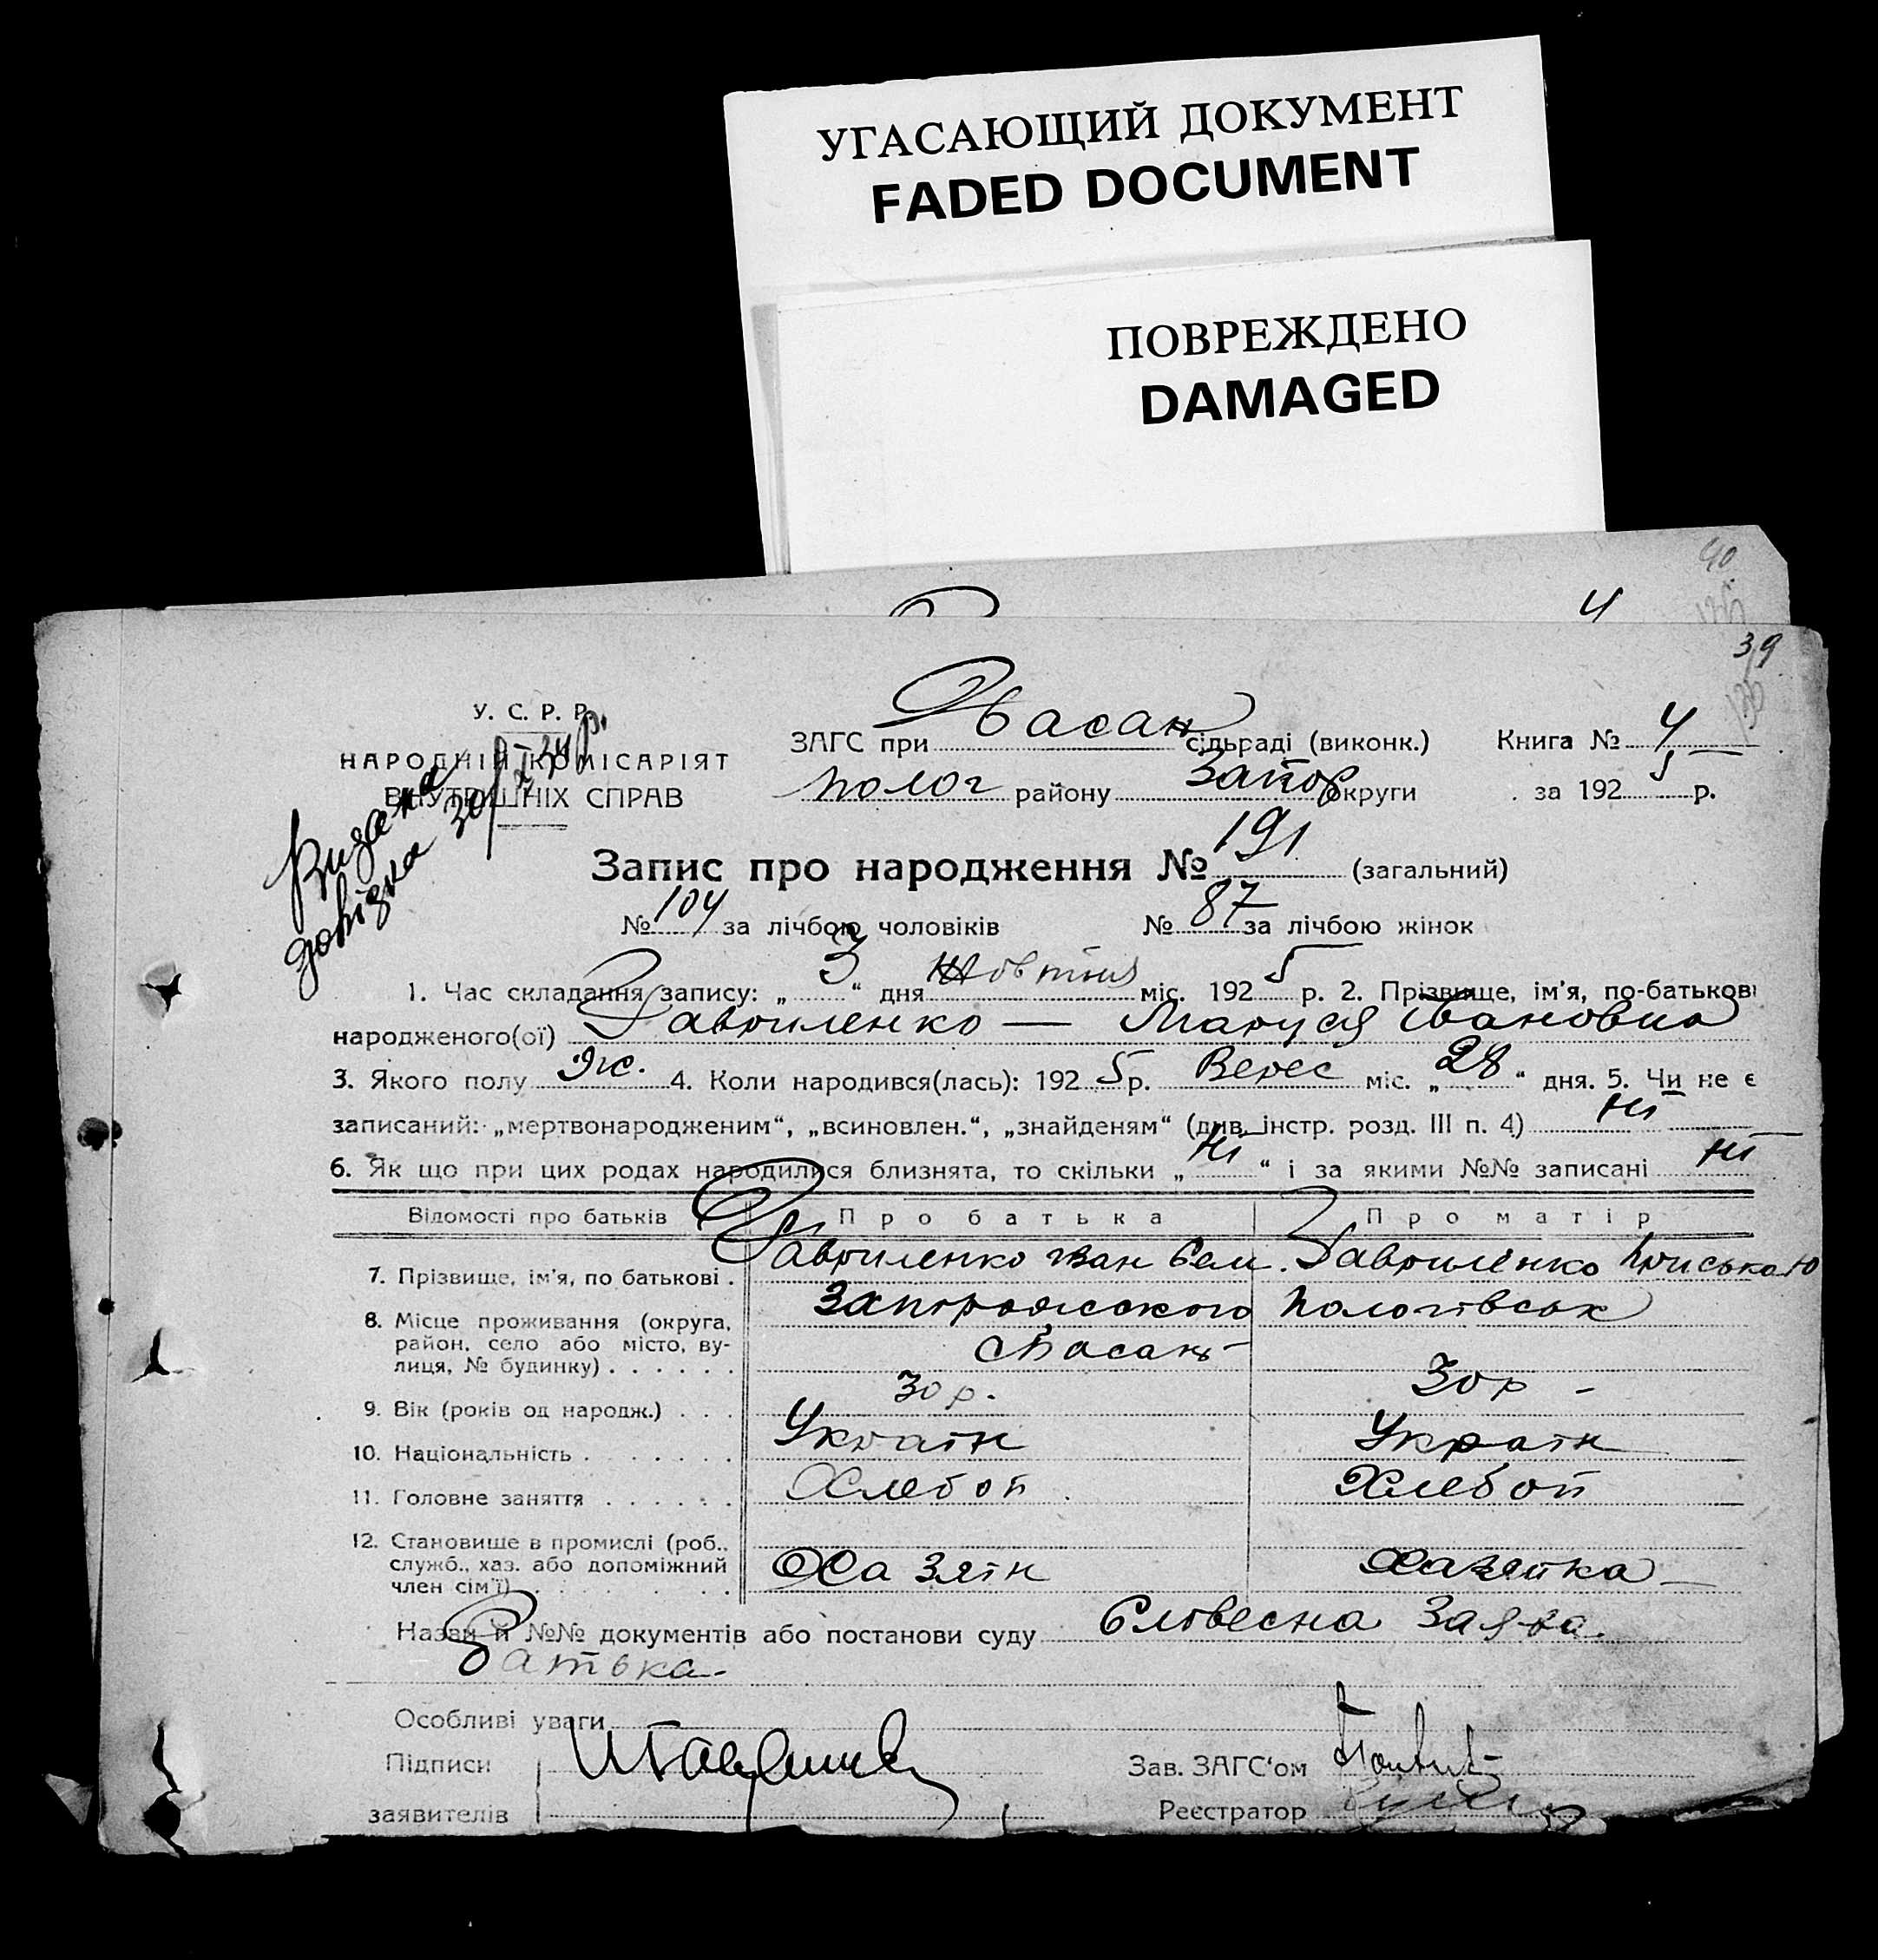 УГАСАЮЩИЙ ДОКУМЕНТ
FADED DOCUMENT
ПОВРЕЖДЕНО
DAMAGED
40
4
39
У. С. Р. Р.
НАРОДНІЙ КОМІСАРІЯТ
ВНУТРІШНІХ СПРАВ
Видана
довізка 30/
ЗАГС при Басан сільраді (виконк.) Книга № 4
Полог району Запор округи за 1925 р.
Запис про народження № 191 (загальний)
№ 104 за лічбою чоловіків № 87 за лічбою жінок
1. Час складання запису: „3“ дня Жовтня міс. 1925 р. 2. Прізвище, ім'я, по-батькові
народженого(ої) Гавриленко — Маруся Івановна
3. Якого полу Ж. 4. Коли народився(лась): 1925 р. Верес міс. „28“ дня. 5. Чи не є
записаний: „мертвонародженим“, „всиновлен.“, „знайденям“ (див. інстр. розд. III п. 4) Ні
6. Як що при цих родах народилися близнята, то скільки „Ні“ і за якими №№ записані Ні
Відомості про батьків Про батька Про матір
7. Прізвище, ім'я, по батькові . Гавриленко Іван Сем. Гавриленко
8. Місце проживання (округа, Запорожського Пологівськ
район, село або місто, ву- с Басань
лиця, № будинку) . . . . . .
9. Вік (років од народж.) . . . 30 р. 30 р –
10. Національність . . . . . . . Україн Україн
11. Головне заняття . . . . . . Хлебоп Хлебоп
12. Становище в промислі (роб.,
служб., хаз. або допоміжний Хазяїн Хазяйка –
член сім'ї) . . . . . . . .
Назви й №№ документів або постанови суду Словесна Заява
Батька
Особливі уваги
Підписи Зав. ЗАГС'ом
заявителів Реєстратор